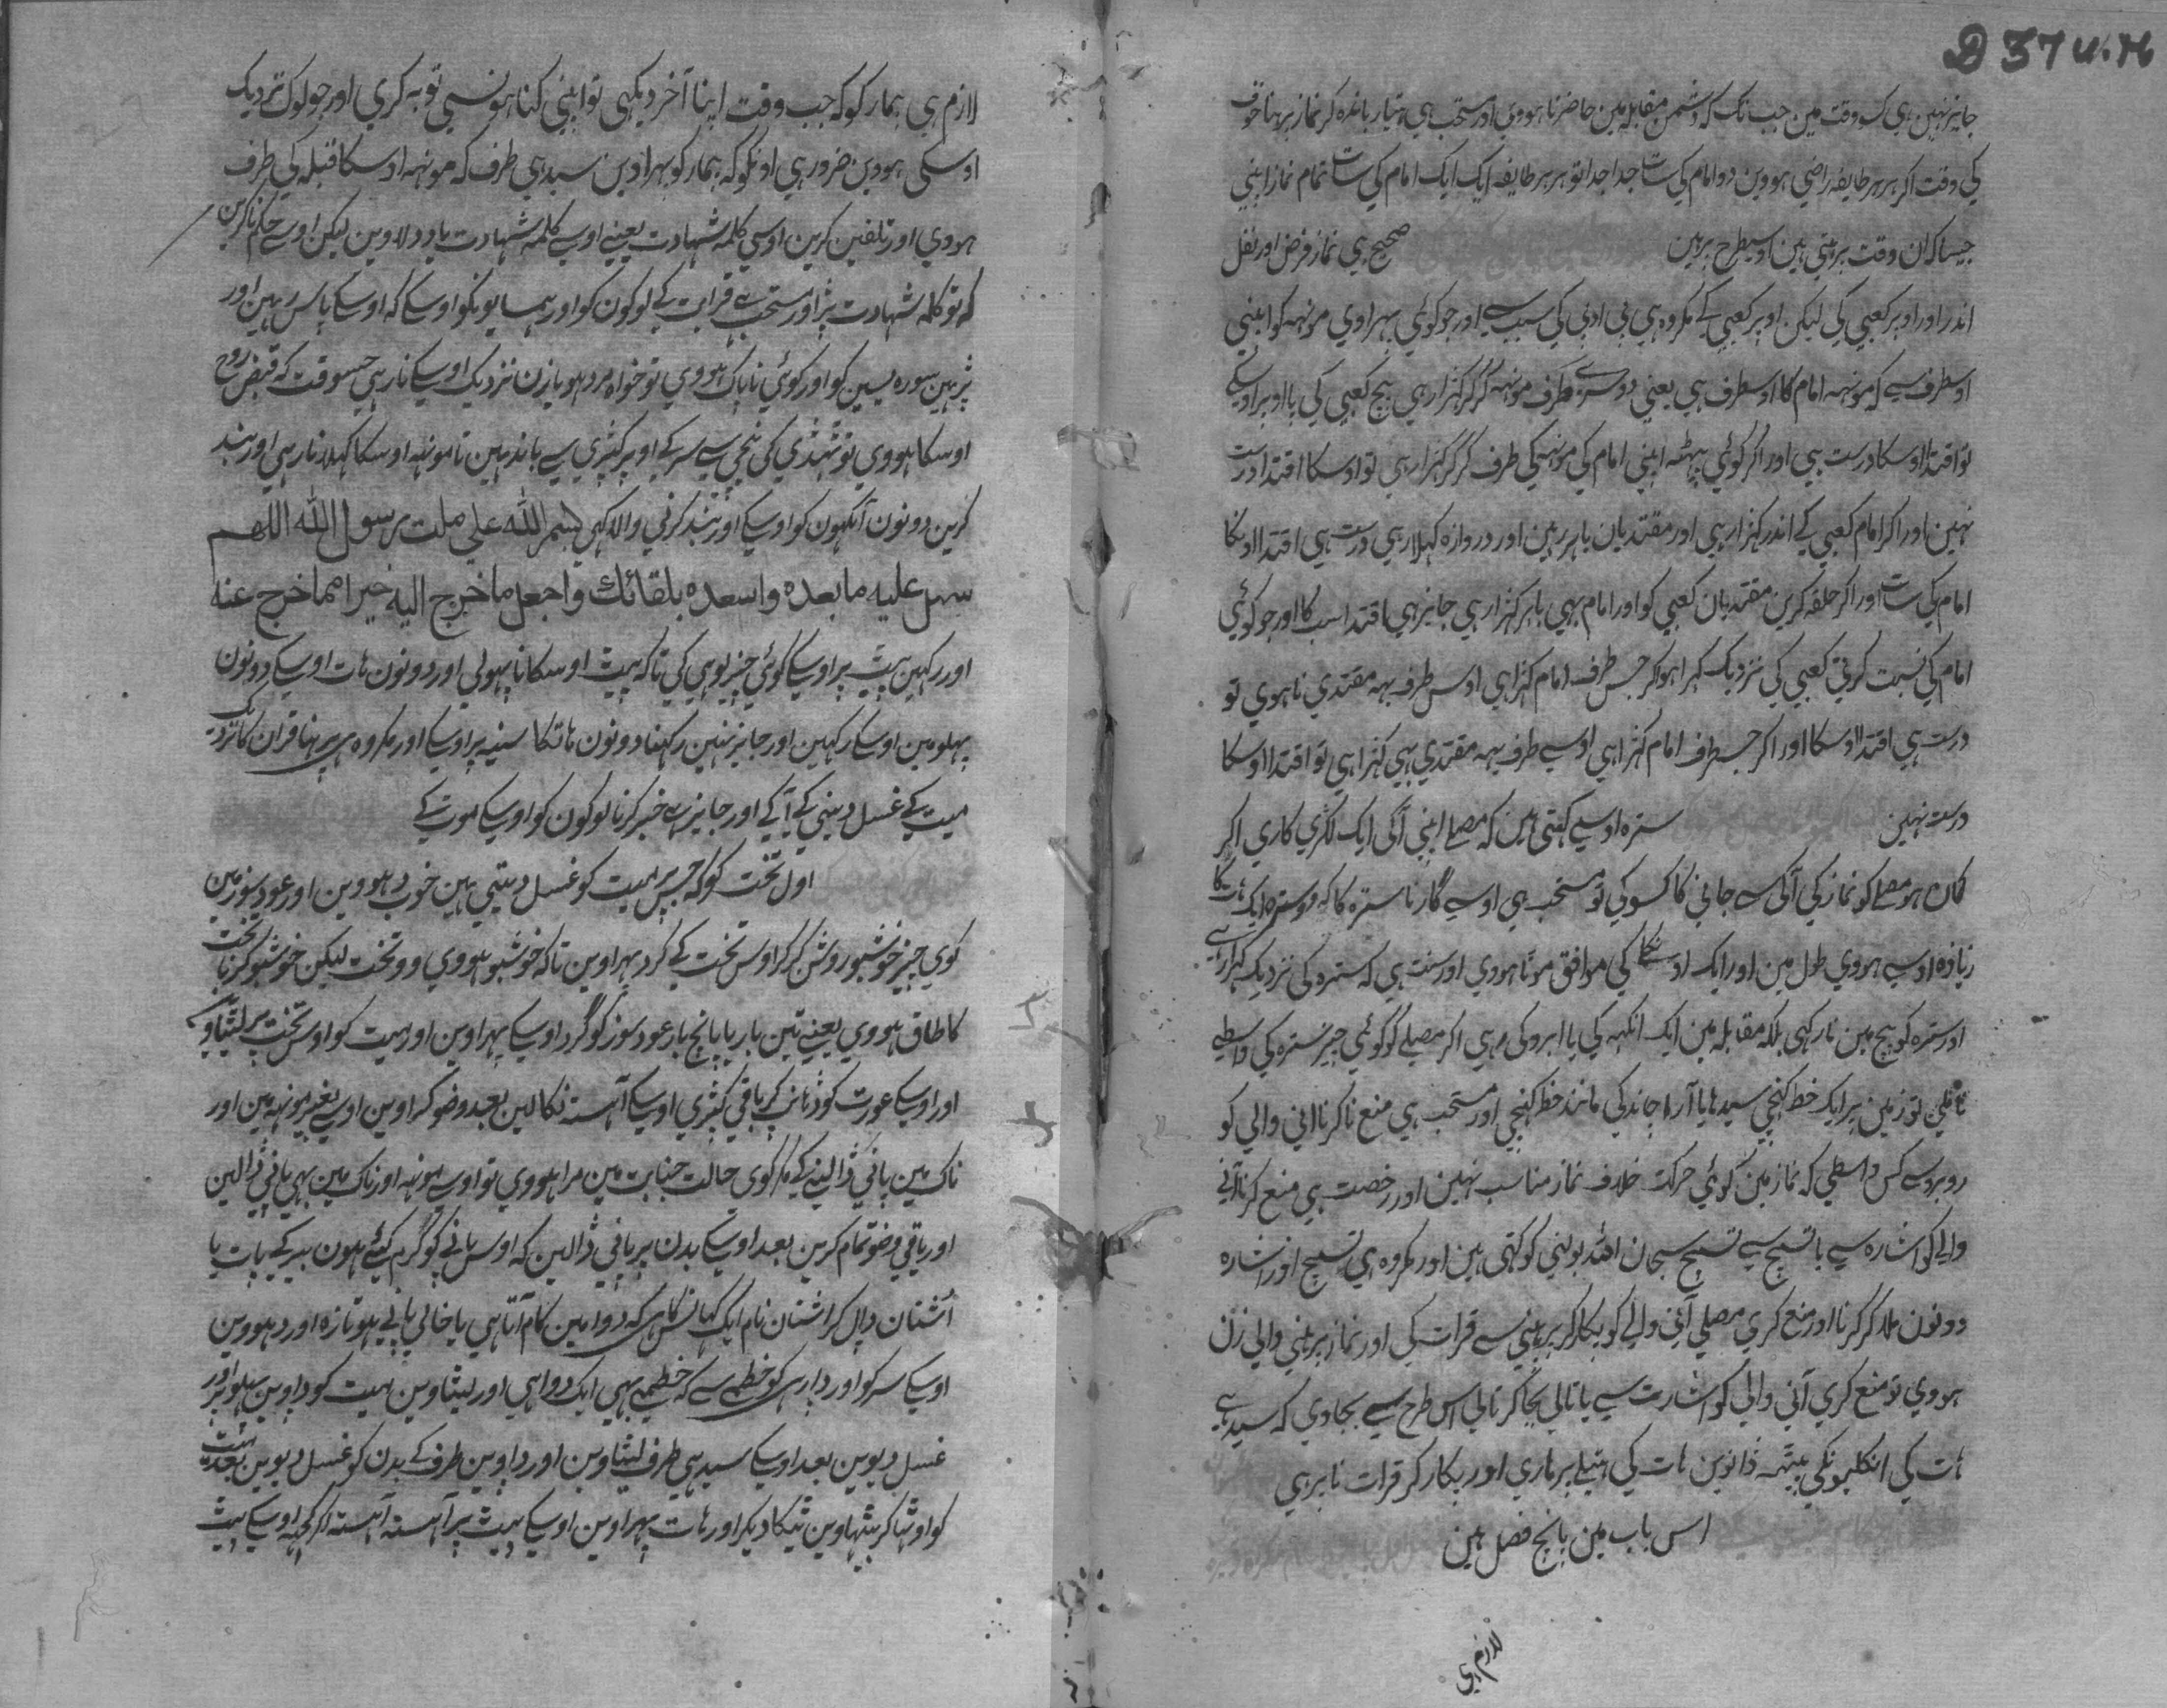 D 37 U.M
جایز نہین ہی کسوقت مین جب تک کہ دشمن مقابلہ مین حاضر نا ہووی اور مستحب ہی ہتیار باندہ کر نماز پرہنا خوف
کی وقت اکر ہر ہر طایفہ راضی ہووین دو امام کی سات جدا جدا تو ہر ہر طایفہ ایک ایک امام کی سات تمام نماز اپنی
جیسا کہ ان وقت پرہتی ہین اوسیطرح پرہین صحیح ہی نماز فرض اور نفل
اندر اور اوپر کعبی کی لیکن اوپر کعبی کے مکروہ ہی بی ادبی کی سبب سے اور جو کوئی پہراوی مونہہ کو اپنی
اوسطرف سے کہ مونہہ امام کا اوسطرف ہی یعنی دوسرے طرف مونہہ کر کر کہڑا رہی بیچ کعبی کی یا اوپر اوسکی
تو اقتدا اوسکا درست ہی اور اگر کوئی پیٹہہ اپنی امام کی مونہکی طرف کر کر کہڑا رہی تو اوسکا اقتدا درست
نہین اور اکر امام کعبی کے اندر کہڑا رہی اور مقتدیان باہر رہین اور دروازہ کہلا رہی درست ہی اقتدا اونکا
امام کی سات اور اکر حلقہ کرین مقتدیان کعبی کو اور امام بہی باہر کہڑا رہی جایز ہی اقتدا سب کا اور جو کوئی
امام کی نسبت کرتی کعبی کی نزدیک کہرا ہو کر جس طرف امام کہڑا ہی اوس طرف یہہ مقتدی نا ہوی تو
درست ہی اقتدا اوسکا اور اکر جسطرف امام کہڑا ہی اوسی طرف یہہ مقتدی بہی کہڑا ہی تو اقتدا اوسکا
درست نہین سترہ اوسے کہتی ہین کہ مصلے اپنی آگی ایک لکڑی کاری اکر
کمان ہو مصلے کو نماز کی آگی سے جانی کا کسو کی تو مستحب ہی اوسے گارنا سترہ کا کہ وو سترہ ایک ہات کا
زیادہ اوسے ہووی طول مین اور ایک اونگلی کی موافق موتا ہووی اور سنت ہی کہ سترہ کی نزدیک کہرا رہے
اور سترہ کو بیچ مین نا رکہی بلکہ مقابلہ مین ایک انکہہ کی یا ابرو کی رہی اکر مصلے کو کوئی چیز سترہ کی واسطی
نا ملی تو زمین پر ایک خط کہنچی سیدہا یا آرا چاند کی مانند خط کہنچی اور مستحب ہی منع نا کرنا انی والی کو
روبرو سے کس واسطی کہ نماز مین کوئی حرکت خلاف نماز مناسب نہین اور رخصت ہی منع کرنا آنے
والے کو اشارہ سے یا تسبیح سے تسبیح سبحان اللہ بولنی کو کہتی ہین اور مکروہ ہی تسبیح اور اشارہ
دونون ملا کر کرنا اور منع کری مصلی آنی والے کو پکار کر پرہنی سے قرات کی اور نماز پرہنی والی زن
ہووی تو منع کری آنی والی کو اشارت سے یا تالی بجا کر تالی اس طرح سے بجاوی کہ سیدہے
ہات کی انکلیونکی پیٹہہ ڈانوین ہات کی ہتیلے پر ماری اور پکار کر قرات نا پرہی
اس باب مین پانچ فصل ہین
لازم ہی
لازم ہی بیمار کو کہ جب وقت اپنا آخر دیکہی تو اپنی کناہونسی توبہ کری اور جو لوک نزدیک
اوسکی ہووین ضرور ہی اونکو کہ بیمار کو پہرادین سیدہی طرف کہ مونہہ اوسکا قبلہ کی طرف
ہووی اور تلقین کرین اوسی کلمہ شہادت یعنے اوسے کلمہ شہادت یاد دلاوین لیکن اوسے حکم نا کرین
کہ تو کلمہ شہادت پڑ اور مستحب ہے قرابت کے لوکون کو اور ہمسایونکو اوسکے کہ اوسکے پاس رہین اور
پڑہین سورہ یسین کو اور کوئی ناپاک ہووی تو خواہ مرد ہو یا زن نزدیک اوسکے نا رہی جسوقت کہ قبض روح
اوسکا ہووی تو تہڈی کی نیچی سے سر کے اوپر کپڑی سے باندہین تا مونہہ اوسکا کہلا نا رہی اور بند
کرین دونون آنکہون کو اوسکے اور بند کرنی والا کہی بسم الله علی ملت رسول الله اللهم
سهل علیه ما بعده واسعده بلقائك واجعل ما خرج الیه خیرا مما خرج عنه
اور رکہین پیٹ پر اوسکے کوئی چیز لوہی کی تاکہ پیٹ اوسکا نا پہولی اور دونون ہات اوسکے دونون
پہلو مین اوسکے رکہین اور جایز نہین رکہنا دونون ہاتکا سینہ پر اوسکے اور مکروہ ہی پرہنا قران کا نزدیک
میت کے غسل دینی کے آگے اور جایز ہے خبر کرنا لوکون کو اوسکے موت کے
اول تخت کو کہ جس پر میت کو غسل دیتی ہین خوب دہووین اور عود سوز مین
کوی چیز خوشبو روشن کر کر اوس تخت کے کرد پہراوین تاکہ خوشبو ہووی وو تخت لیکن خوشبو کرنا تخت
کا طاق ہووی یعنے تین بار یا پانچ بار عود سوز کو گرد اوسکے پہراوین اور میت کو اوس تخت پر لیٹاوین
اور اوسکے عورت کو ڈہانپ کر باقی کپڑی اوسکے آہستہ نکالین بعد وضو کراوین اوسے بغیر مونہہ مین اور
ناک مین پانی ڈالینے کے مکر کوی حالت جنابت مین مرا ہووی تو اوسے مونہہ اور ناک مین بہی پانی ڈالین
اور باقی وضو تمام کرین بعد اوسکے بدن پر پانی ڈالین کہ اوس پانی کو گرم کیئے ہون بیر کے پات یا
اُشنان ڈال کر اشنان نام ایک گہانس کا ہی کہ دوا مین کام آتا ہی یا خالی پانی ہو تازہ اور دہووین
اوسکے سر کو اور داڑی کو خطمے سے کہ خطمے بہی ایک دوا ہی اور لیٹاوین میت کو داوین پہلو پر اور
غسل دیوین بعد اوسکے سیدہی طرف لیٹاوین اور داوین طرف کے بدن کو غسل دیوین بعد میت
کو اوٹہا کر بیٹہاوین ٹیکا دیکر اور ہات پہراوین اوسکے پیٹ پر آہستہ آہستہ اکر کچہہ اوسکے پیٹ